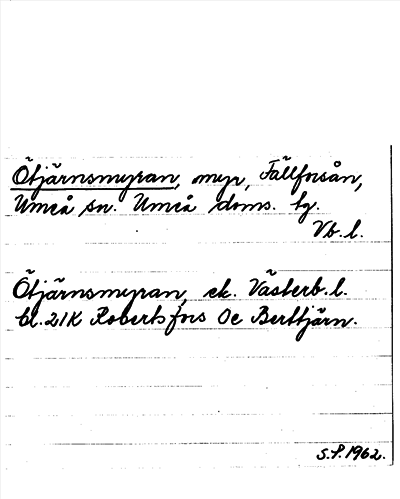 Ötjärnsmyran, myr, Fällforsån,
Umeå sn. Umeå doms. tg.
Vb. l.
Ötjärnsmyran, ek. Västerb. l.
bl. 21K Robertsfors 0c Berttjärn.
S.P. 1962.